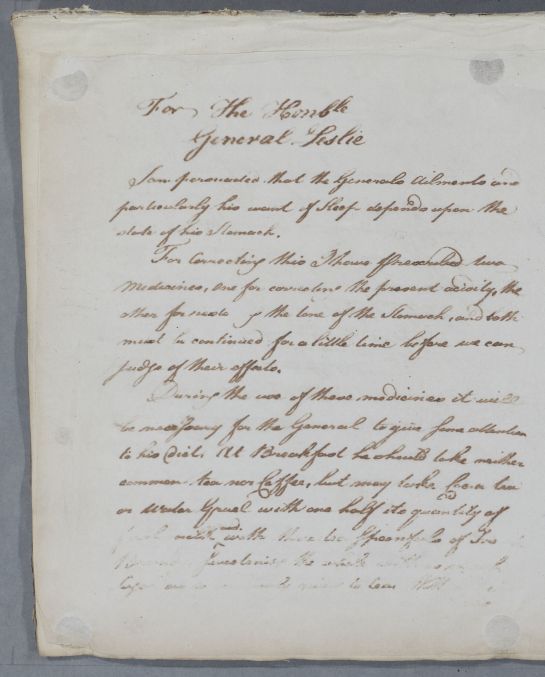 For The Honble
General Leslie
I am persuaded that the Generals Ailments and
particularly his want of Sleep depends upon the
state of his Stomach.
For Correcting this I have prescribed two
Medicines, one for correcting the present acidity, the
other for the tone of the Stomach, and both
must be continued for a little time before we can
judge of their effects.
During the use of these medicines it will
be necessary for the General to give some attention
to his Diet. At Breakfast he should take neither
common tea nor Coffee, but may take tea
or Water Gruel with one half its quantity of
milk and with two Spoonfuls of
the whole with
to